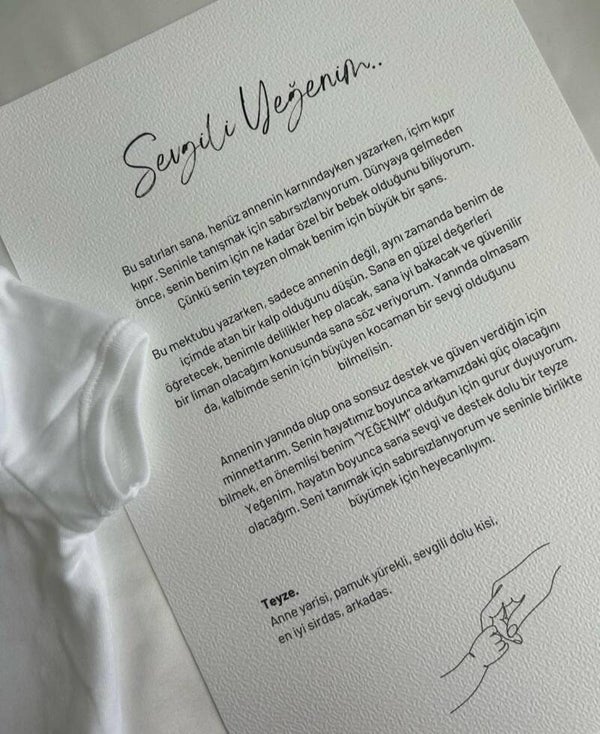 Sevgili Yeğenim..
Bu satırları sana, henüz annenin karnındayken yazarken, içim kıpır
kıpır. Seninle tanışmak için sabırsızlanıyorum. Dünyaya gelmeden
önce, senin benim için ne kadar özel bir bebek olduğunu biliyorum.
Çünkü senin teyzen olmak benim için büyük bir şans.
Bu mektubu yazarken, sadece annenin değil, aynı zamanda benim de
içimde atan bir kalp olduğunu düşün. Sana en güzel değerleri
öğretecek, benimle delilikler hep olacak, sana iyi bakacak ve güvenilir
bir liman olacağım konusunda sana söz veriyorum. Yanında olmasam
da, kalbimde senin için büyüyen kocaman bir sevgi olduğunu
bilmelisin.
Annenin yanında olup ona sonsuz destek ve güven verdiğin için
minnettarım. Senin hayatımız boyunca arkamızdaki güç olacağını
bilmek, en önemlisi benim "YEĞENIM" olduğun için gurur duyuyorum.
Yeğenim, hayatın boyunca sana sevgi ve destek dolu bir teyze
olacağım. Seni tanımak için sabırsızlanıyorum ve seninle birlikte
büyümek için heyecanlıyım.
Teyze.
Anne yarisi, pamuk yürekli, sevgili dolu kisi,
en iyi sirdas, arkadas.